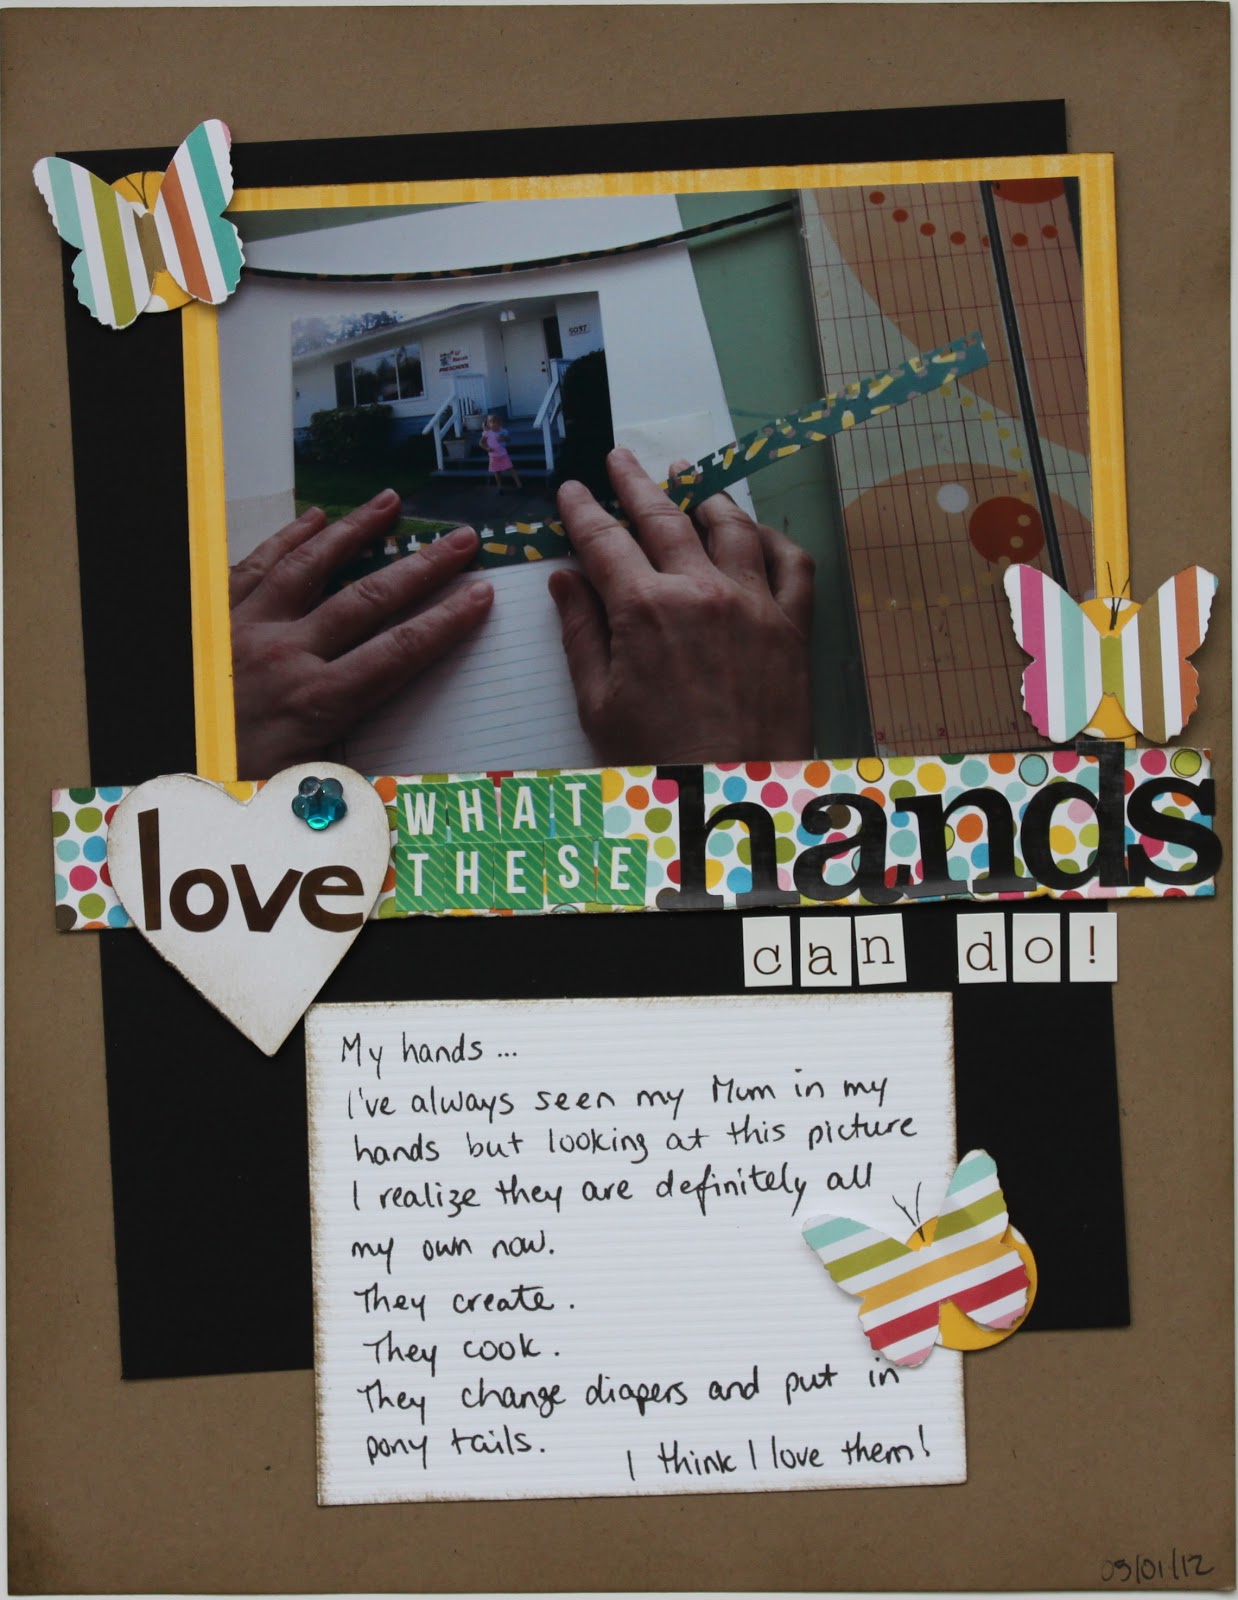 5037
PRESCHOOL
love
WHAT
THESE
hands
can do!
My hands...
I've always seen my Mum in my
hands but looking at this picture
I realize they are definitely all
my own now.
They create.
They cook.
They change diapers and put in
pony tails.
I think I love them!
09/01/12